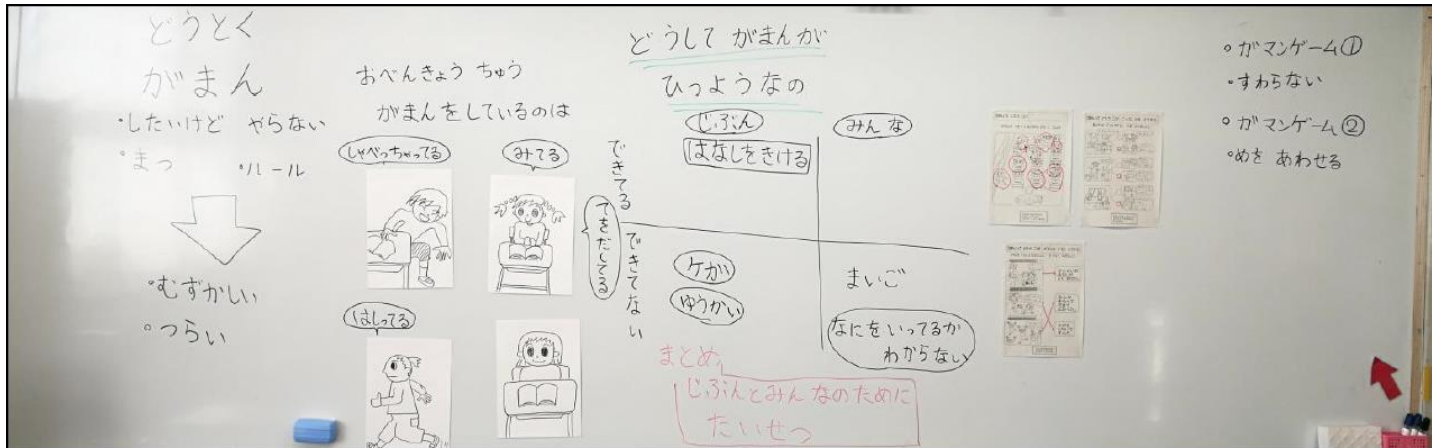 どうとく
がまん
・したいけど やらない
・まつ ・ルール
・むずかしい
・つらい
おべんきょう ちゅう
がまんをしているのは
しゃべっちゃってる
みてる
てをだしてる
はしってる
どうして がまんが
ひつようなの
じぶん
みんな
できてる
はなしをきける
できてない
ケガ
ゆうかい
まいご
なにをいってるか
わからない
まとめ
じぶんとみんなのために
たいせつ
・ガマンゲーム①
・すわらない
・ガマンゲーム②
・めを あわせる